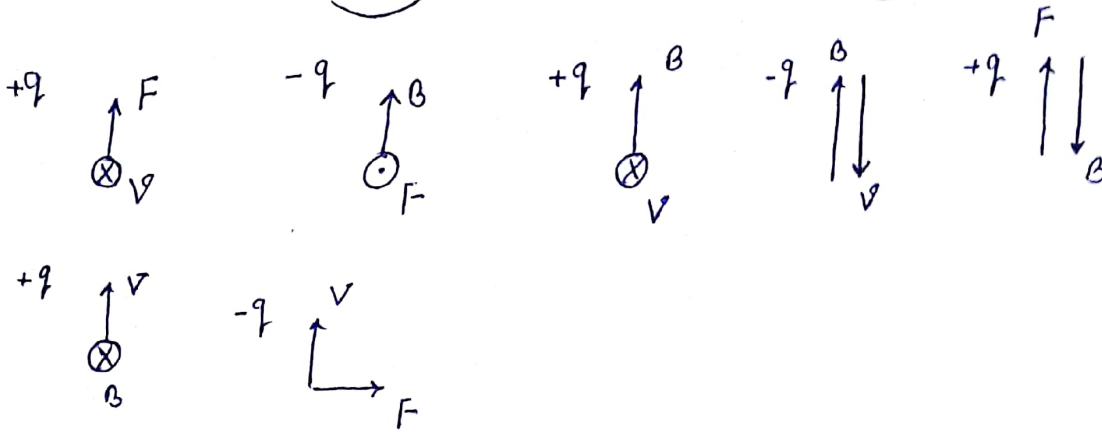 +q F V -q B F +q B V -q B V +q F B
+q V B -q V F